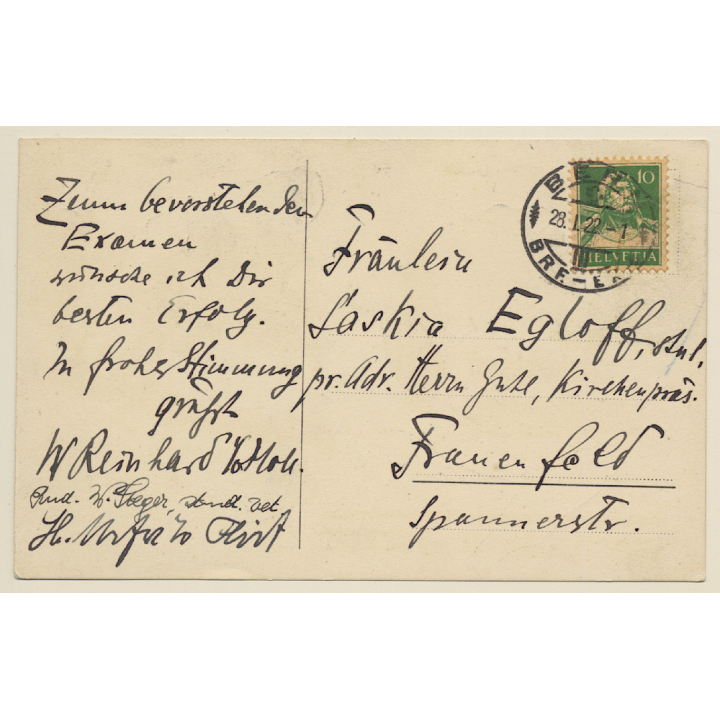 Zum bevorstehenden
Examen
wünsche ich Dir
besten Erfolg.
In froher Stimmung
grüsst
W Reinhard
Rud. W. Steger, stud. vet.
Fräulein
Saskia Egloff, stud.
pr. Adr. Herrn Gute, Kirchenpräs.
Frauenfeld
Spannerstr.
10
HELVETIA
BERN
28.I.22.-1
BRF.-E